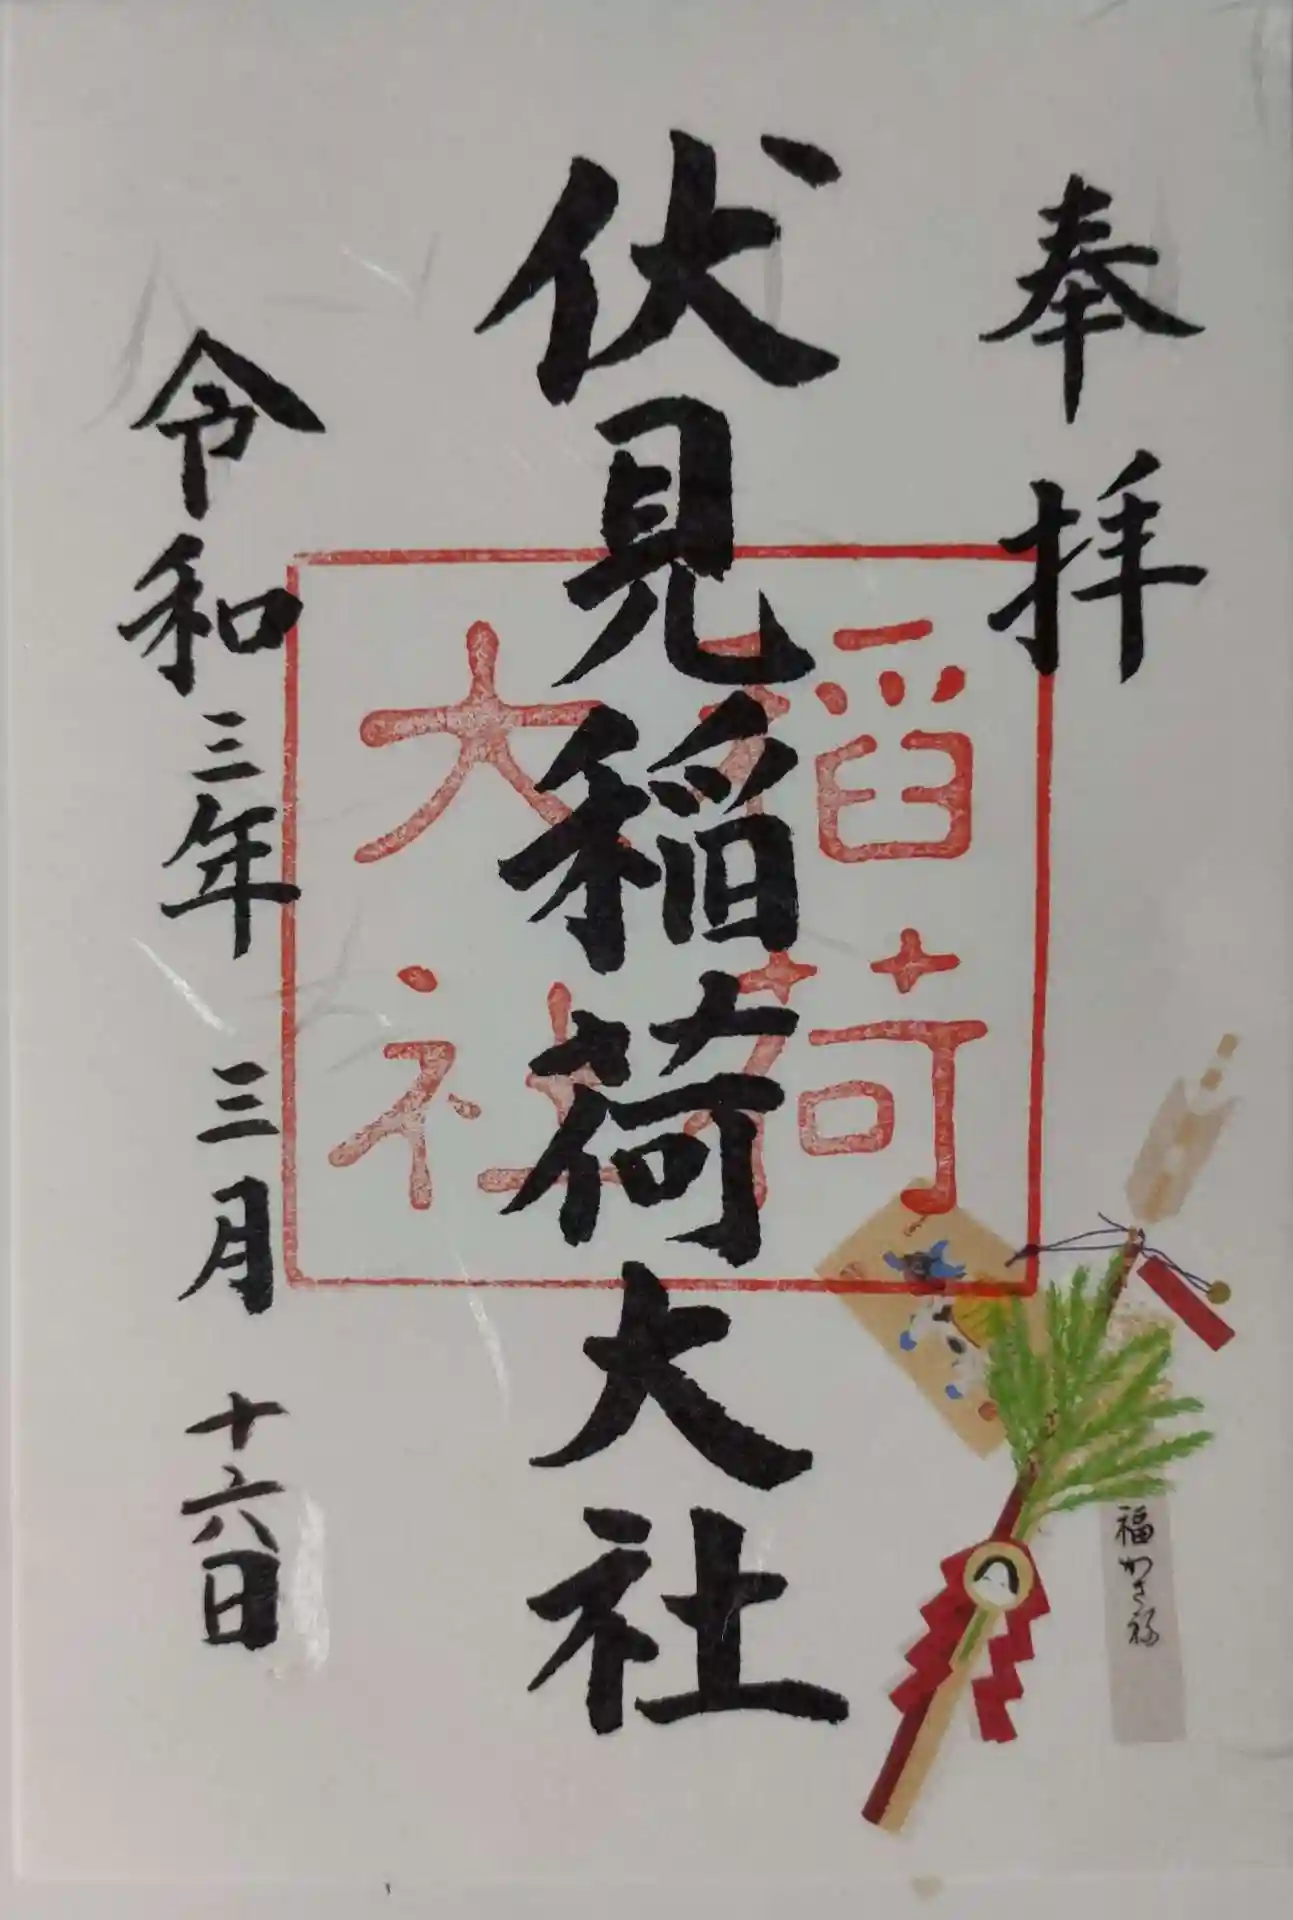 奉拝
伏見稲荷大社
稲荷
大社
令和三年 三月 十六日
福かさね